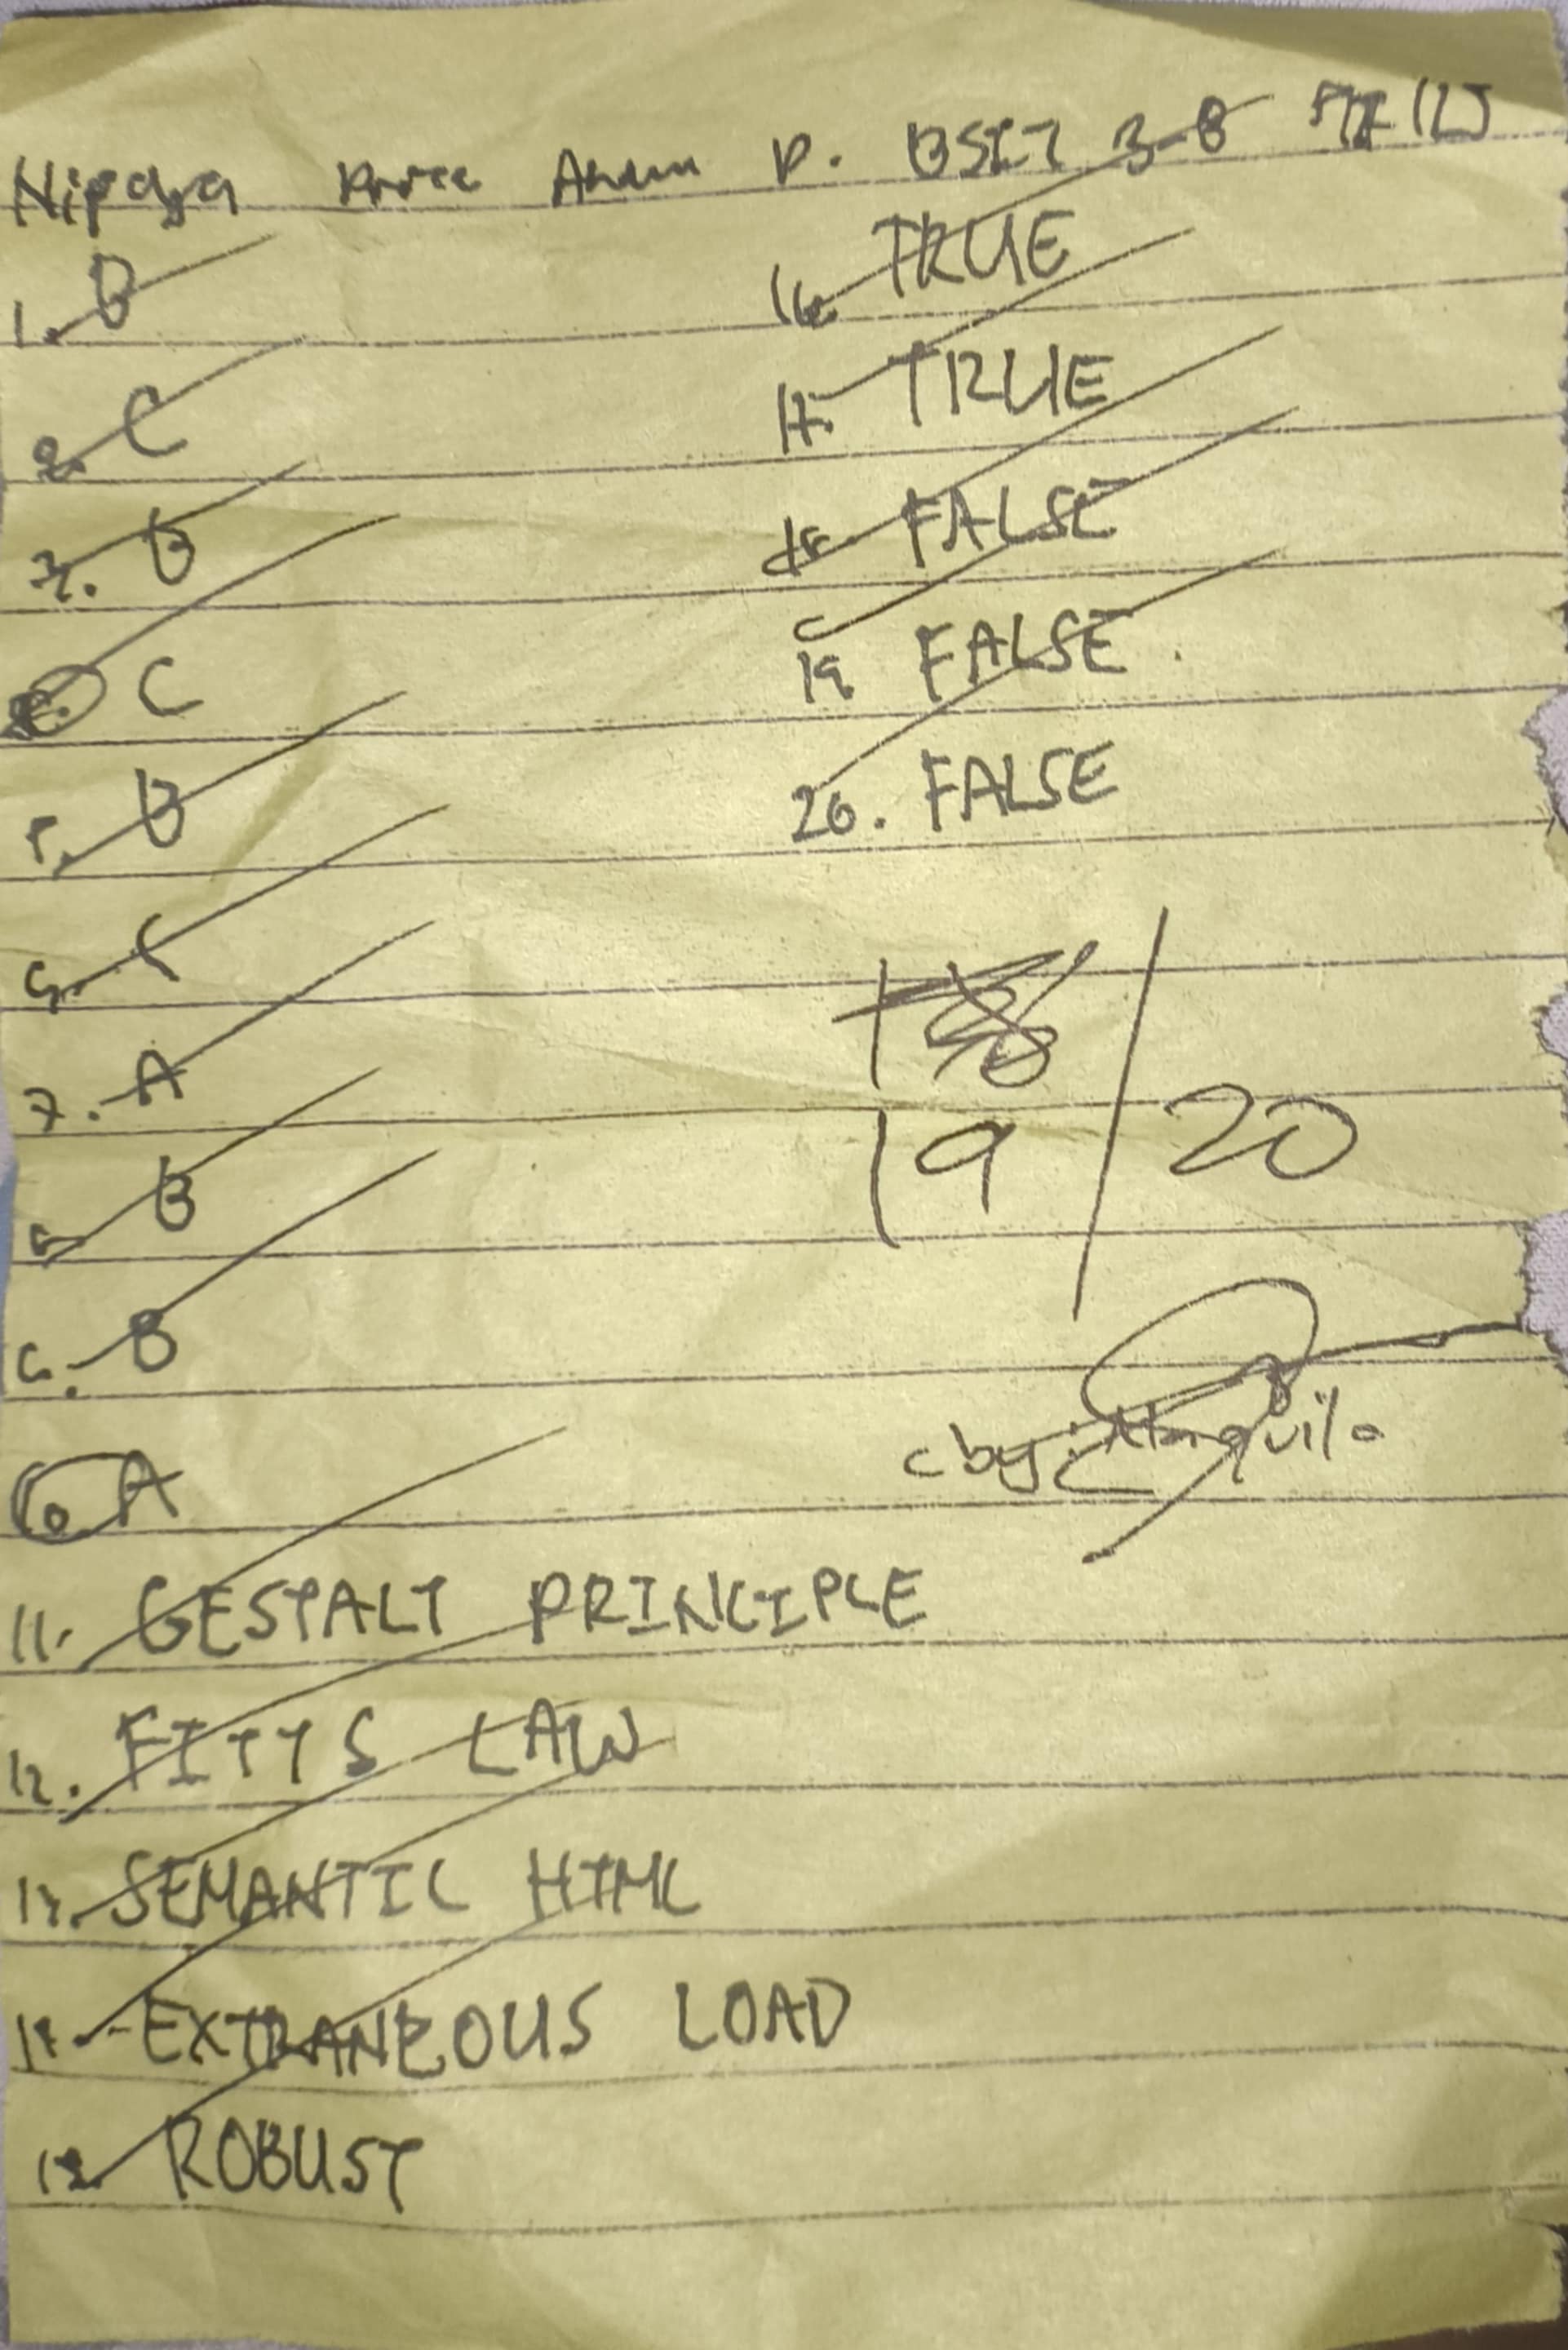 P. BSIT 3-B
1. B
2. C
3. B
C
5. B
6. C
7. A
8. B
9. B
10. A
11. GESTALT PRINCIPLE
12. FITTS LAW
13. SEMANTIC HTML
14. EXTRANEOUS LOAD
15. ROBUST
16. TRUE
17. TRUE
18. FALSE
19 FALSE
20. FALSE
19/20
cby: Manquilo